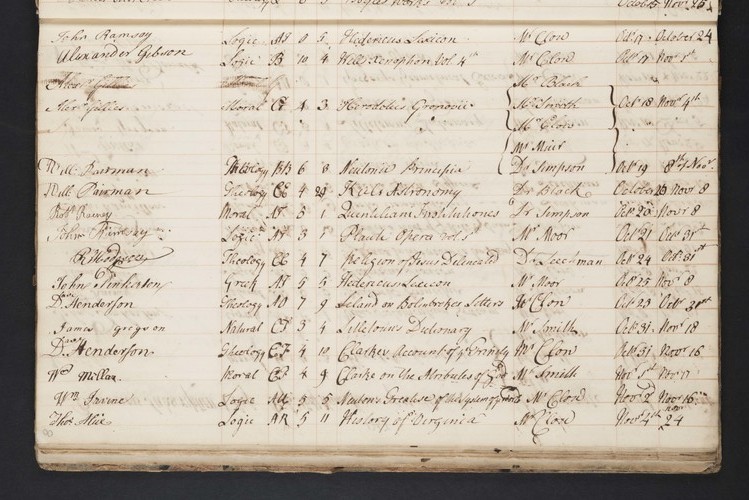 John Ramsay Logic AS 8 5 Hederieus Lexicon Mr Clow Octr 17 October 24
Alexander Gibson Logic B 10 4 Wells Xenophon Vol 4th Mr Clow Octr 17 Novr 1st
Mr Black
Alexr Gillies Moral 4 3 Herodotus Gronovii Mr Smith Octr 18 Novr 4th
Mr Clow
Mr Muir
Will Bowman Theology BB 6 8 Neutons Principia Dr Simpson Octr 19 8th of Novr
Will Bowman Theology CC 4 Keils Astronomy Dr Black October Novr 8
Robt Moral AS 5 1 Quintilian Institutiones Dr Simpson Octr 20 Novr 8
John Ramsay Logic AS 3 5 Plauti Opera Vol. Mr Moor Octr 21 Octr 31st
Theology CC 4 7 Religion of Jesus Delineated Dr Leechman Octr 24 Octr 31st
John Pinkerton Greek AS 5 5 Hedericus Lexicon Mr Moor Octr 25 Novr 8
Dav Henderson Theology AO 7 9 Leland on Bolinbrokes Letters Mr Clow Octr 23 Octr 31st
James gregson Natural CI 3 4 Littletons Dictionary Mr Smith Octr 31 Novr 18
Dav Henderson Theology CF 4 10 Clarkes Account of ye Trinity Mr Clow Octr 31 Novr 16
Wm Millar Moral CF 4 9 Clarke on the Attributes of God Mr Smith Novr 1st Novr 17
Wm Irvine Logic AU 5 5 Neutons Treatise of the System of World Mr Clow Novr 2d Novr 16
Thos Logic AR 5 11 History of Virginia Mr Clow Novr 4th novr 24